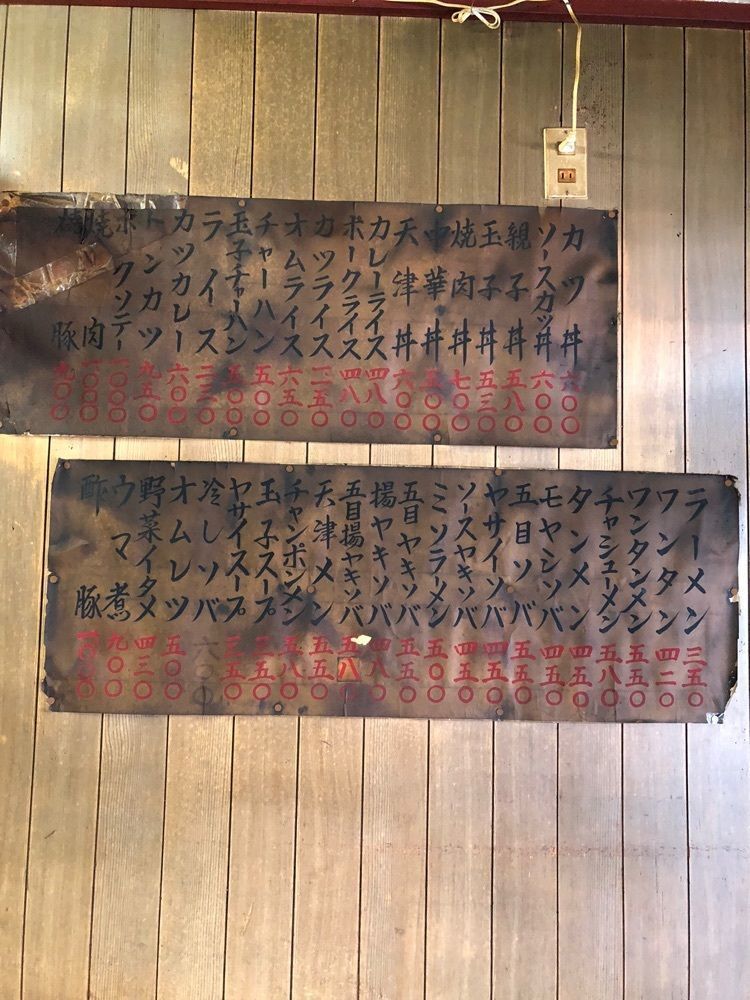 カツ丼 六〇〇
ソースカツ丼 六〇〇
親子丼 五八〇
玉子丼 五三〇
焼肉丼 七〇〇
中華丼 五五〇
天津丼 六〇〇
カレーライス 四八〇
ポークライス 四八〇
カツライス
オムライス 六五〇
チャーハン 五〇〇
玉子チャーハン 五五〇
ライス
カツカレー 六〇〇
トンカツ 九五〇
ポークソテー 一〇〇〇
焼肉 一〇〇〇
焼豚 九〇〇
ラーメン 三五〇
ワンタン 四二〇
ワンタンメン 五五〇
チャシューメン 五八〇
タンメン 四五〇
モヤシソバ 四五〇
五目ソバ 五五〇
ヤサイソバ 四五〇
ソースヤキソバ 四五〇
ミソラーメン 五〇〇
五目ヤキソバ 五五〇
揚ヤキソバ 四八〇
五目揚ヤキソバ 五八〇
天津メン 五五〇
チャンポンメン 五八〇
玉子スープ 三五〇
ヤサイスープ 三五〇
冷しソバ 六〇〇
オムレツ 五〇〇
野菜イタメ 四三〇
ウマ煮 九〇〇
酢豚 一〇〇〇